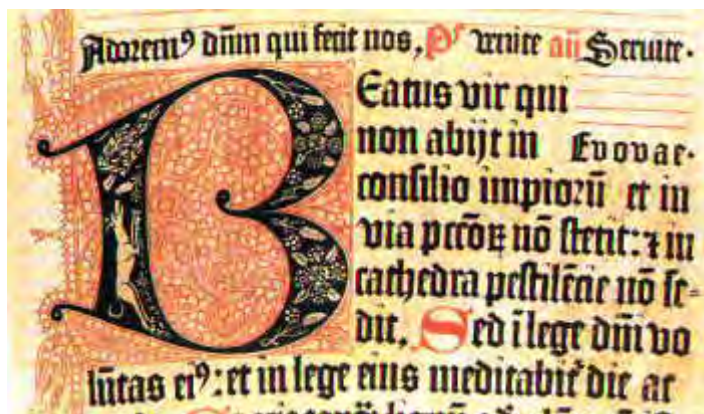 Adorem⁹ dn̄m qui fecit nos, p̄s venite an̄ Seruite.
Beatus vir qui
non abijt in Evovae.
consilio impioꝝ et in
via pctōꝝ nō stetit: ⁊ in
cathedra pestilētie nō se=
dit, Sed ī lege dn̄i vo
lūtas ei⁹: et in lege eius meditabit᷑ die ac